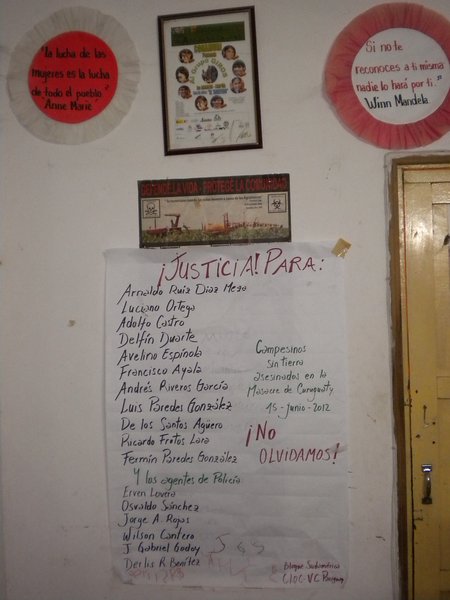 "la lucha de las
mujeres es la lucha
de todo el pueblo"
"Anne Marie"
Si no te
reconoces a ti misma
nadie lo hará por ti."
"Winn Mandela
DEFENDE LA VIDA - PROTEGE LA COMUNIDAD
¡JUSTICIA! PARA:
Arnaldo Ruiz Diaz Meza
Luciano Ortega
Adolfo Castro
Delfín Duarte
Avelino Espínola
Francisco Ayala
Andrés Riveros García
Luis Paredes González
De los Santos Agüero
Ricardo Frutos Lara
Fermín Paredes González
Campesinos
sin tierra
asesinados en la
Masacre de Curuguaty
15-Junio-2012
¡No
OLVIDAMOS!
Y los agentes de Policía
Erven Lovera
Osvaldo Sánchez
Jorge A. Rojas
Wilson Cantero
J Gabriel Godoy
Derlis R. Benítez
bloque Sudamérica
CLOC-VC Paraguay